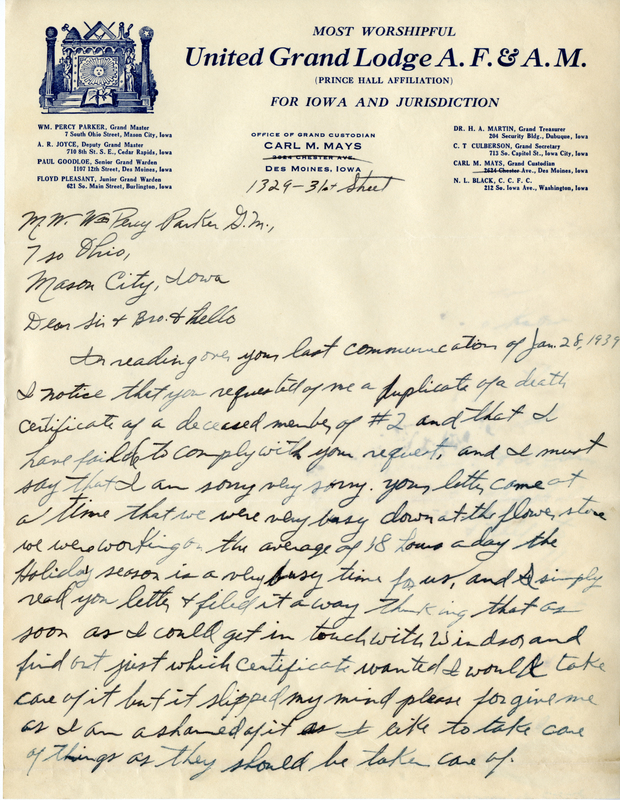 MOST WORSHIPFUL
United Grand Lodge A. F. & A. M.
(PRINCE HALL AFFILIATION)
FOR IOWA AND JURISDICTION
WM. PERCY PARKER, Grand Master
7 South Ohio Street, Mason City, Iowa
A. R. JOYCE, Deputy Grand Master
710 8th St. S. E., Cedar Rapids, Iowa
PAUL GOODLOE, Senior Grand Warden
1107 12th Street, Des Moines, Iowa
FLOYD PLEASANT, Junior Grand Warden
621 So. Main Street, Burlington, Iowa
OFFICE OF GRAND CUSTODIAN
CARL M. MAYS
2624 CHESTER AVE.
DES MOINES, IOWA
1329-31st Street
DR. H. A. MARTIN, Grand Treasurer
204 Security Bldg., Dubuque, Iowa
C. T CULBERSON, Grand Secretary
713 So. Capitol St., Iowa City, Iowa
CARL M. MAYS, Grand Custodian
2624 Chester Ave., Des Moines, Iowa
N. L. BLACK, C. C. F. C.
212 So. Iowa Ave., Washington, Iowa
M.W. Wm Percy Parker G.M.,
7 so Ohio,
Mason City, Iowa
Dear Sir & Bro. & hello
In reading over your last communication of Jan. 28, 1939
I notice that you requested of me a duplicate of a death
certificate of a deceased member of #2 and that I
have failed to comply with your request, and I must
say that I am sorry very sorry. your letter came at
a time that we were very busy down at the flower store
we were working on the average of 18 hours a day the
Holiday season is a very busy time for us, and I simply
read you letter & filed it a way thinking that as
soon as I could get in touch with Windsor and
find out just which certificate wanted I would take
care of it but it slipped my mind please forgive me
as I am ashamed of it as I like to take care
of things as they should be taken care of.